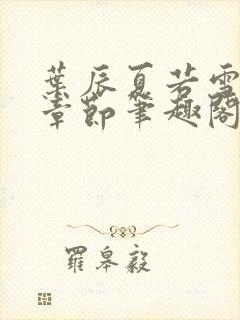 葉辰夏若雪
章節筆趣閣
羅皋毅